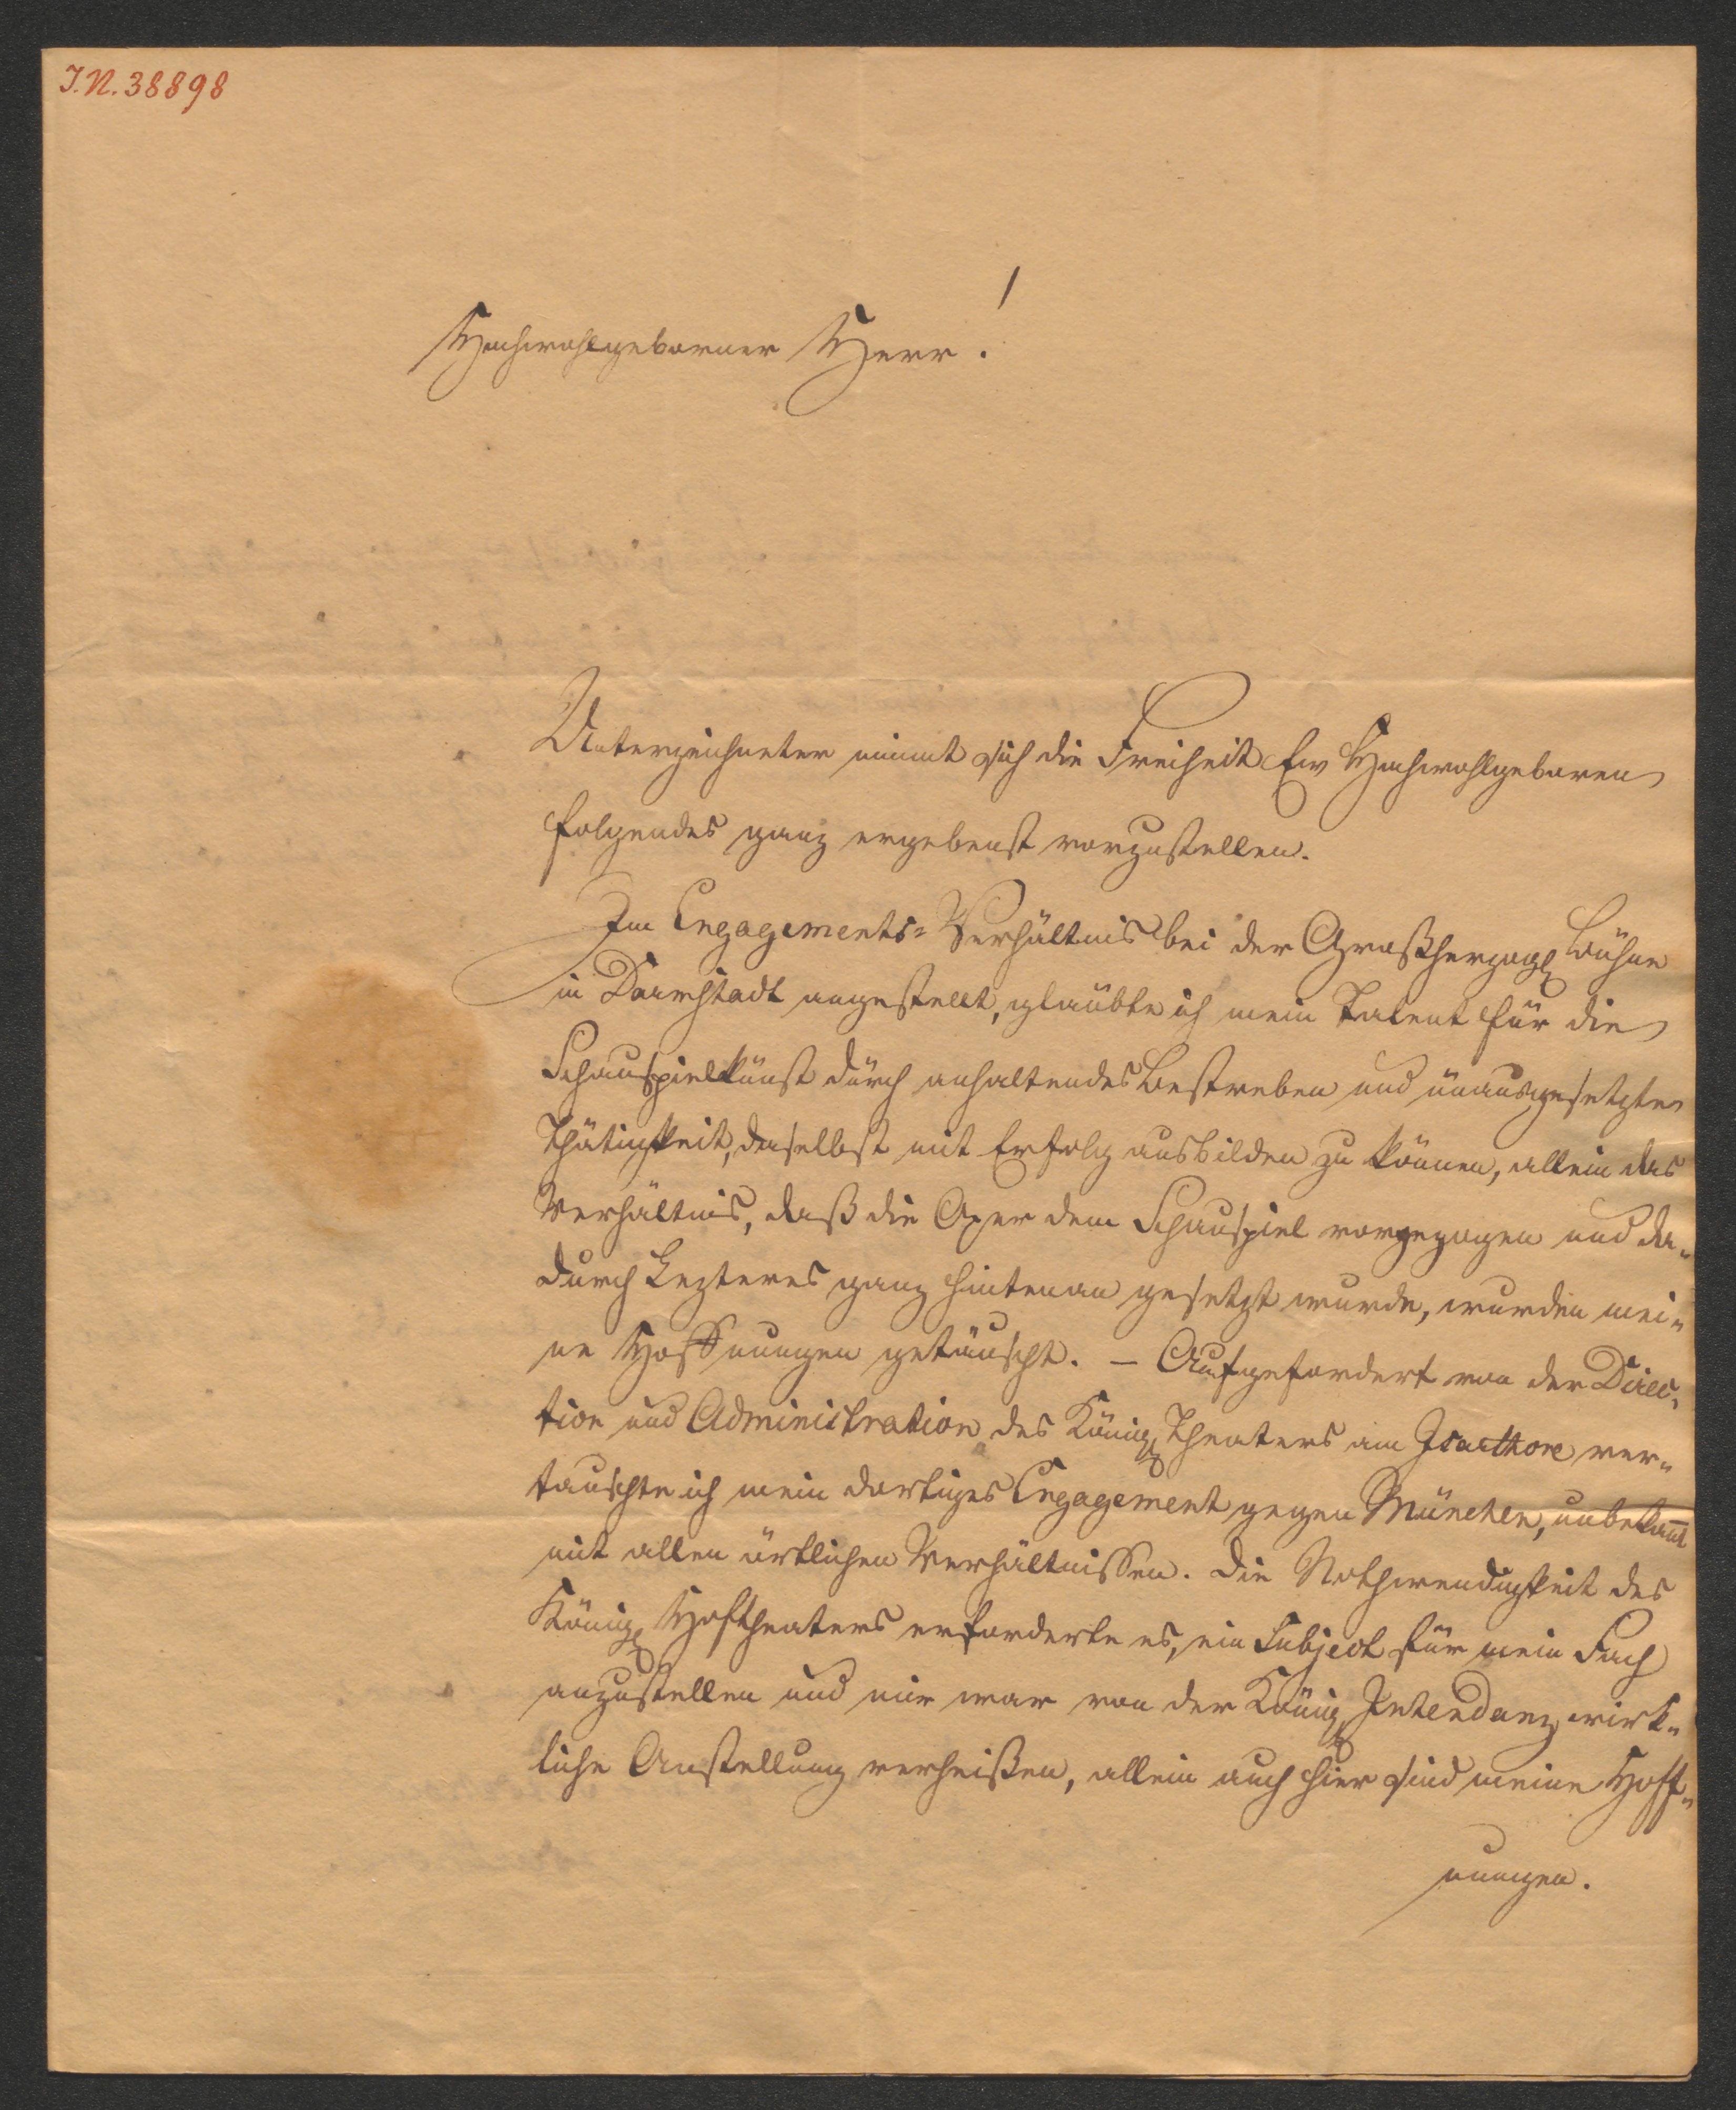 J.N. 38898
Hochwohlgeborner Herr!
Unterzeichneter nimmt sich die Freiheit Ew Hochwohlgeboren
folgendes ganz ergebenst vorzustellen.
Im Engagements-Verhältnis bei der Großherzogl Bühne
in Darmstadt angestellt, glaubte ich mein Talent für die
Schauspielkunst durch anhaltendes Bestreben und unausgesetzte
Thätigkeit, daselbst mit Erfolg ausbilden zu können, allein das
Verhältnis, daß die Oper dem Schauspiel vorgezogen und da-
durch Lezteres ganz hintenan gesetzt wurde, wurden mei-
ne Hoffnungen getäuscht. – Aufgefordert von der Direc-
tion und Administration des Königl Theaters am Isarthore ver-
tauschte ich mein dortiges Engagement gegen München, unbekannt
mit allen örtlichen Verhältnissen. Die Nothwendigkeit des
Königl Hoftheaters erforderte es, ein Subject für mein Fach
anzustellen und mir war von der Königl Intendanz wirk-
liche Anstellung verheißen, allein auch hier sind meine Hoff-
nungen.